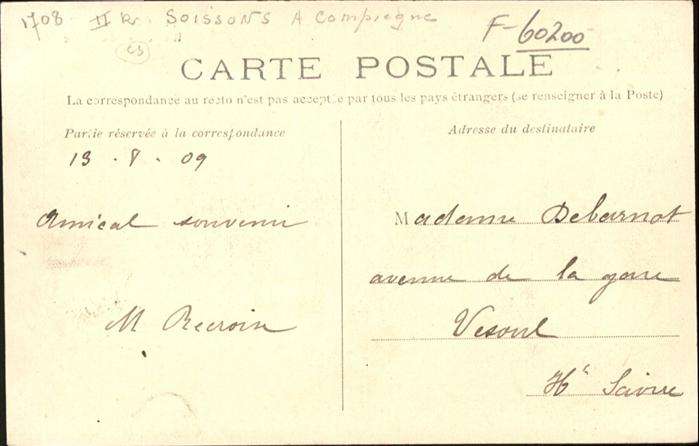 1708 II R. SOISSONS A Compiegne
F-60200
CS
CARTE POSTALE
La correspondance au recto n'est pas acceptée par tous les pays étrangers (se renseigner à la Poste)
Partie réservée à la correspondance
13 . 8 . 09
Amical souvenir
M Recroix
Adresse du destinataire
Madame Debarnot
avenue de la gare
Vesoul
Hte Saône